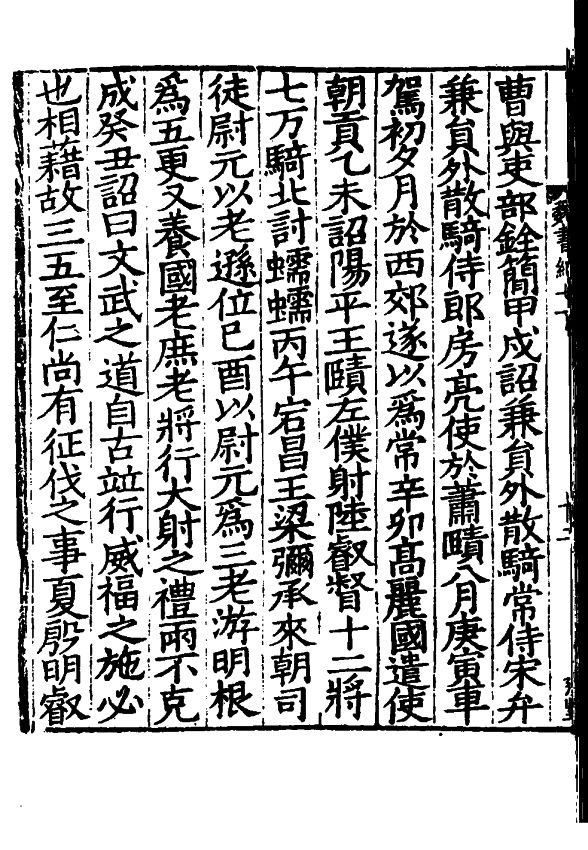 曹與吏部銓簡甲戌詔兼貟外散騎常侍宋弁
兼貟外散騎侍郎房亮使於蕭賾八月庚寅車
駕初夕月於西郊遂以爲常辛卯髙麗國遣使
朝貢乙未詔陽平王賾左僕射陸叡督十二將
七万騎北討蠕蠕丙午宕昌王梁彌承來朝司
徒尉元以老遜位巳酉以尉元爲三老游明根
爲五更又養國老庶老將行大射之禮雨不克
成癸丑詔曰文武之道自古竝行威福之施必
也相藉故三五至仁尚有征伐之事夏殷明叡
魏書紀七下